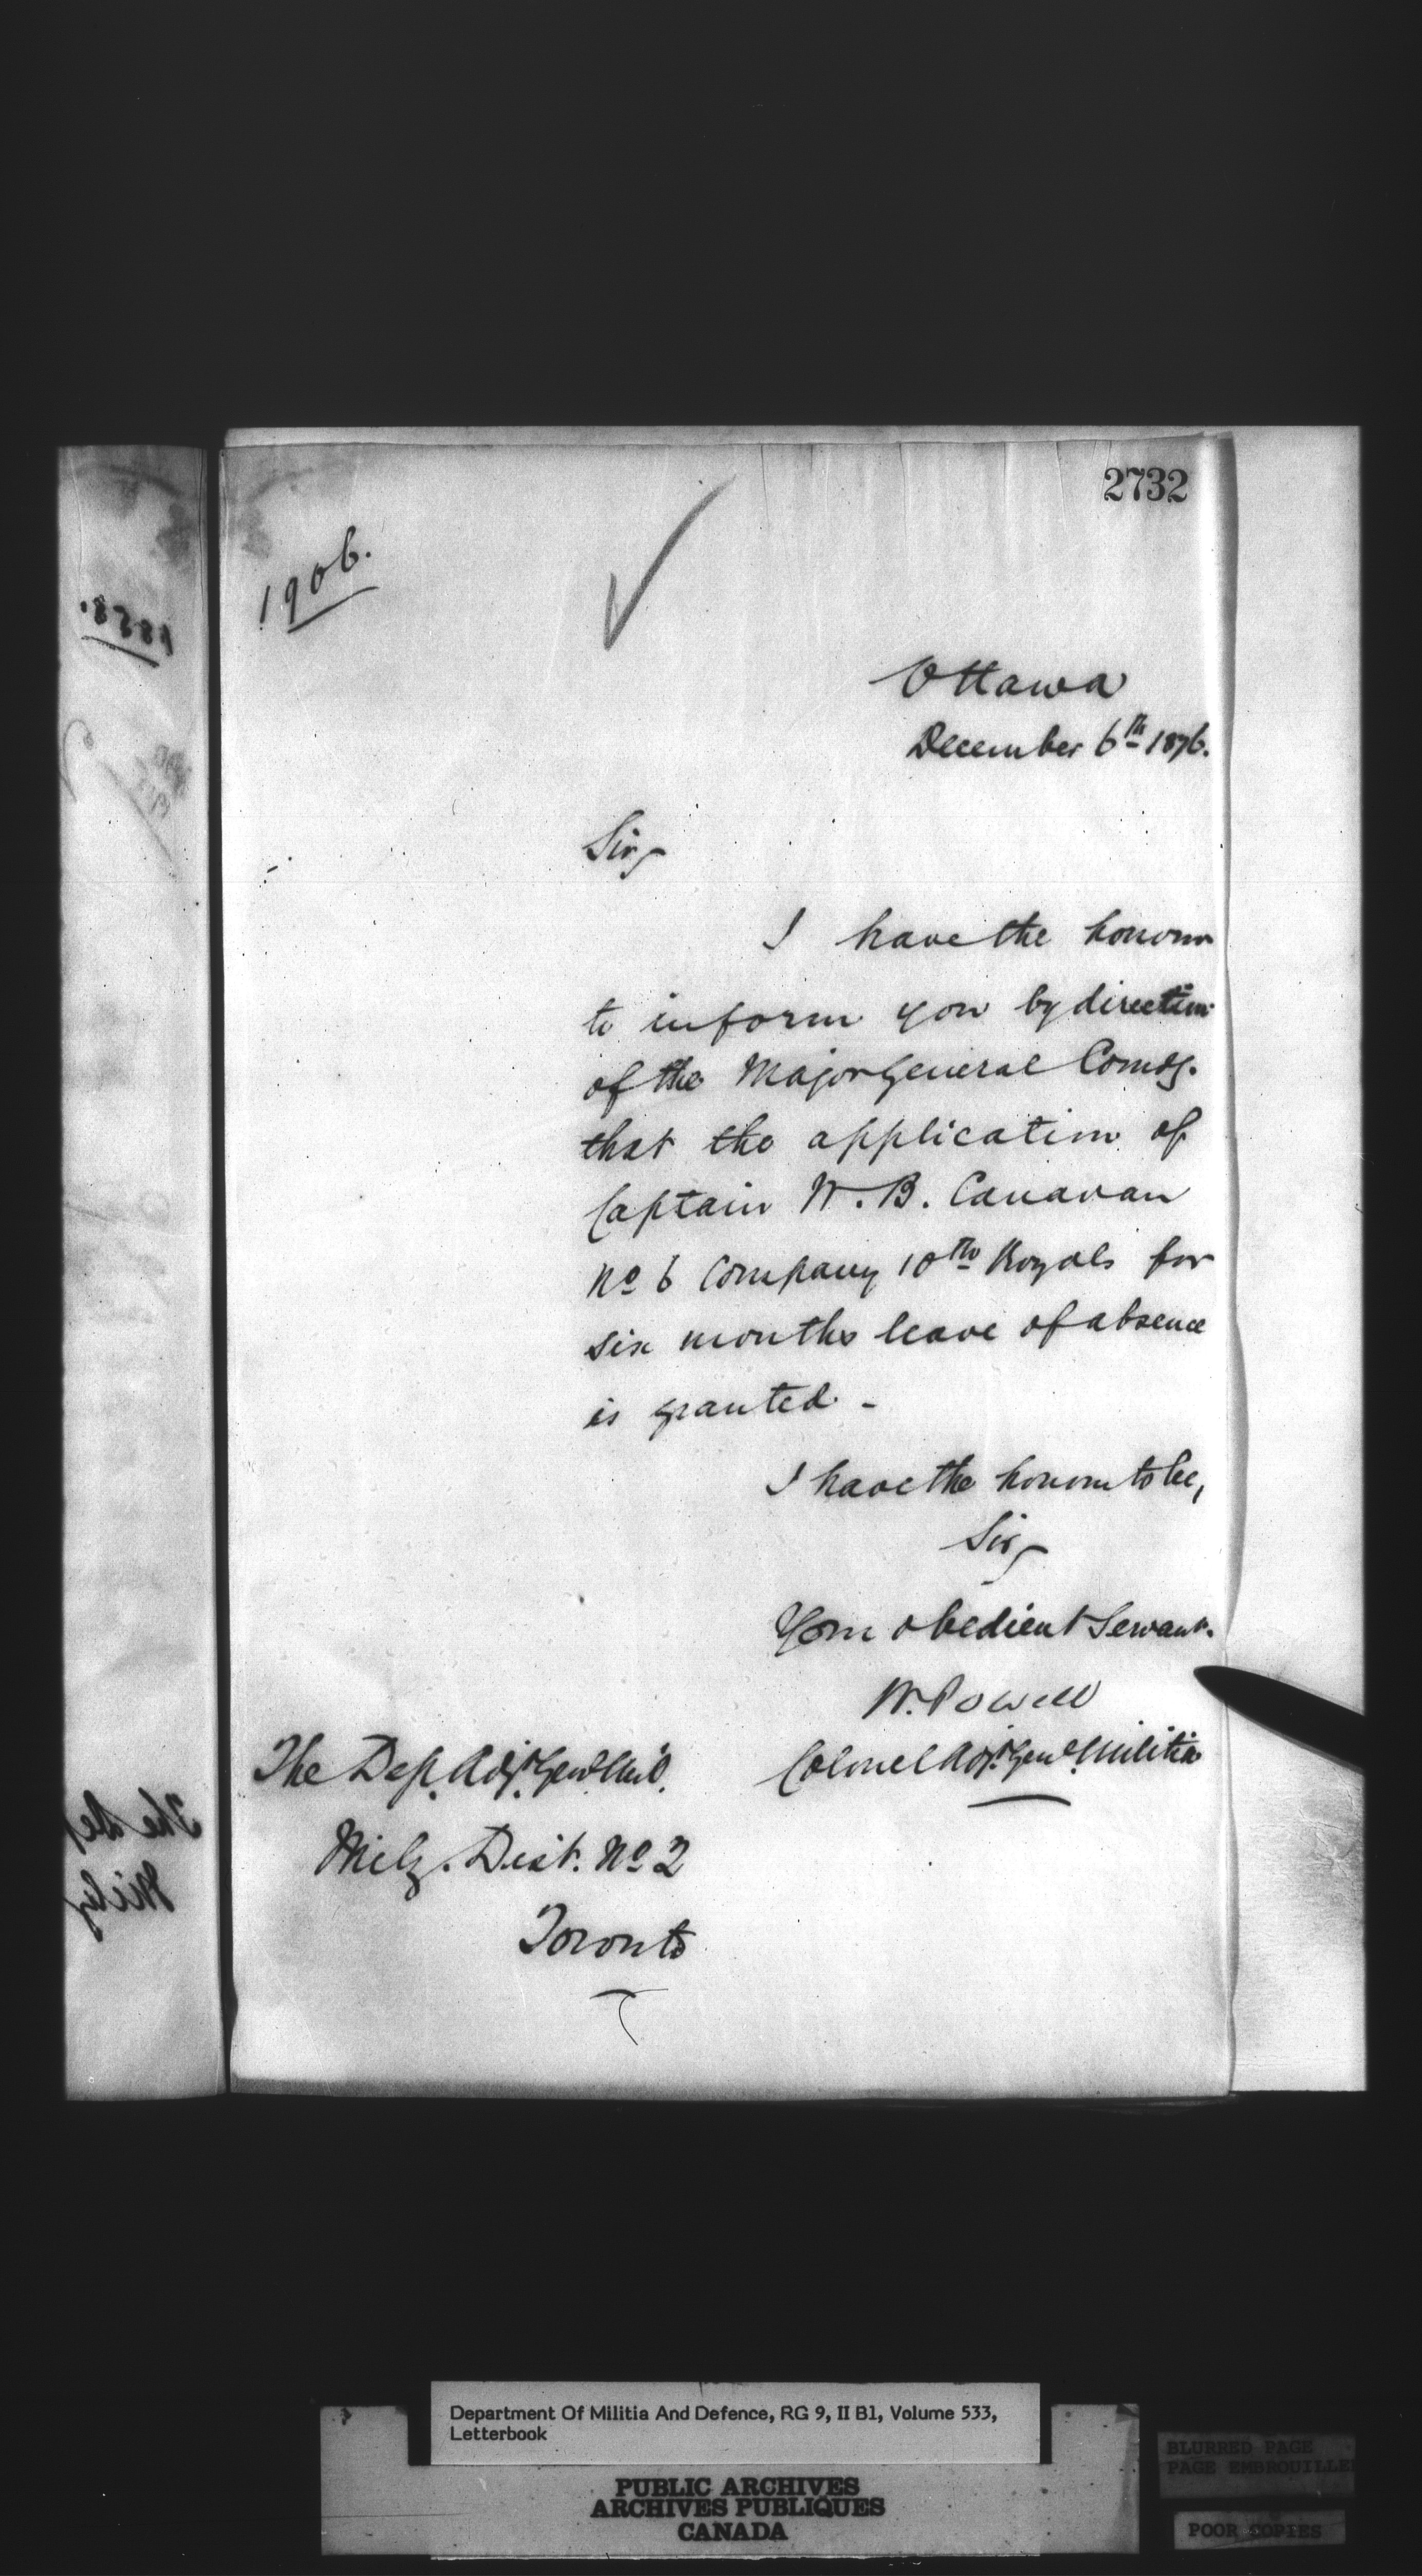 2732
1906.
Ottawa
December 6th 1876.
Sir,
I have the honour
to inform you by direction
of the Major General Comdg.
that the application of
Captain W. B. Canavan
No 6 Company 10th Royals for
six months leave of absence
is granted. -
I have the honour to be,
Sir,
Your obedient Servant.
W. Powell
Colonel Adjt. Genl. Militia
The Dep. Adjt. Genl. Mil.
Mily. Dist. No 2
Toronto
1858.
The Dep
Mily
Department Of Militia And Defence, RG 9, II B1, Volume 533,
Letterbook
PUBLIC ARCHIVES
ARCHIVES PUBLIQUES
CANADA
BLURRED PAGE
PAGE EMBROUILLE
POOR COPIES